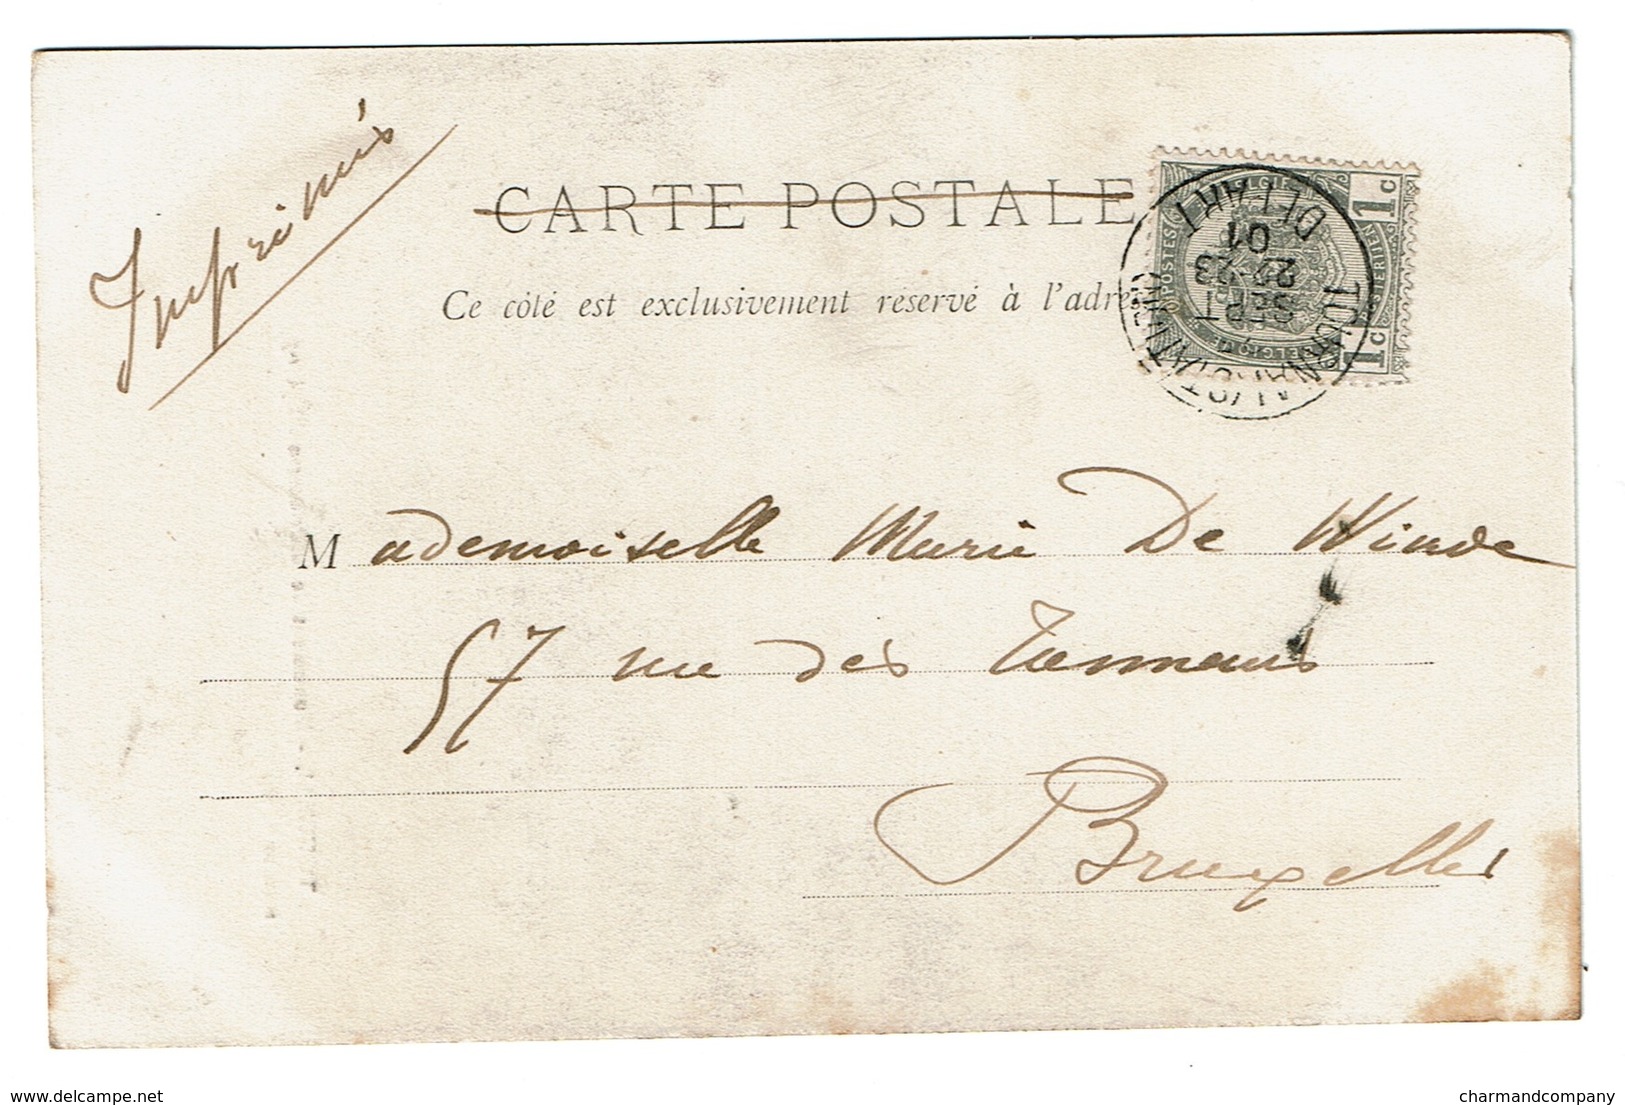 Imprimés
CARTE POSTALE
Ce côté est exclusivement réservé à l'adre
1c 1c
POSTES
DEPART
01
22-23
SEPT
TOURNAI (STATION)
Mademoiselle Marie De Winde
57 rue des Tanneurs
Bruxelles
delcampe.net
charmandcompany